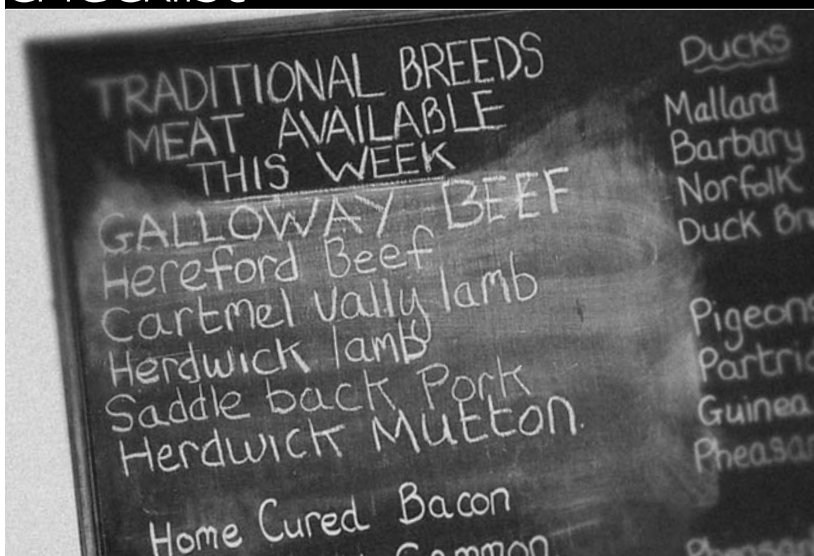 TRADITIONAL BREEDS
MEAT AVAILABLE
THIS WEEK
GALLOWAY BEEF
Hereford Beef
Cartmel Vally lamb
Herdwick lamb
Saddle back Pork
Herdwick Mutton.
Home Cured Bacon
Gammon
Ducks
Mallard
Barbary
Norfolk
Duck
Pigeons
Guinea